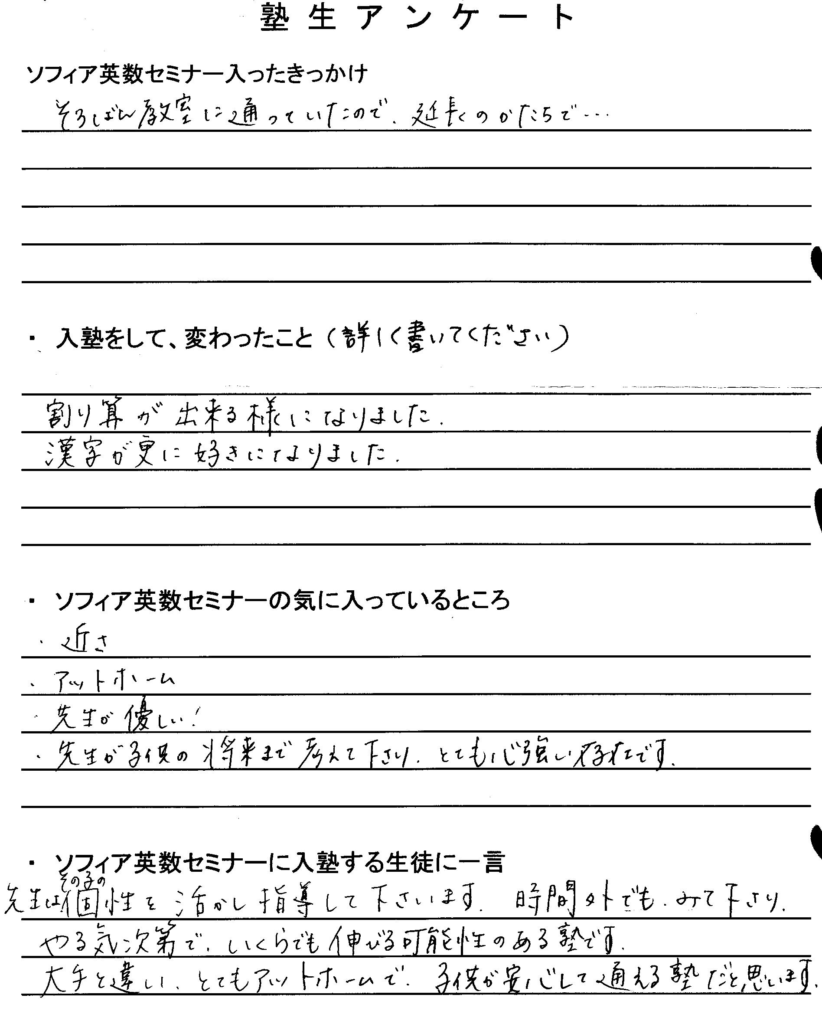 塾生アンケート
ソフィア英数セミナー入ったきっかけ
そろばん教室に通っていたので、延長のかたちで…
・ 入塾をして、変わったこと（詳しく書いてください）
割り算が出来る様になりました.
漢字が更に好きになりました.
・ ソフィア英数セミナーの気に入っているところ
・近さ
・アットホーム
・先生が優しい!
・先生が子供の将来まで考えて下さり、とても心強い存在です.
・ ソフィア英数セミナーに入塾する生徒に一言
その子の
先生は個性を活かし指導して下さいます. 時間外でも、みて下さり、
やる気次第で、いくらでも伸びる可能性のある塾です.
大手と違い、とてもアットホームで、子供が安心して通える塾だと思います.